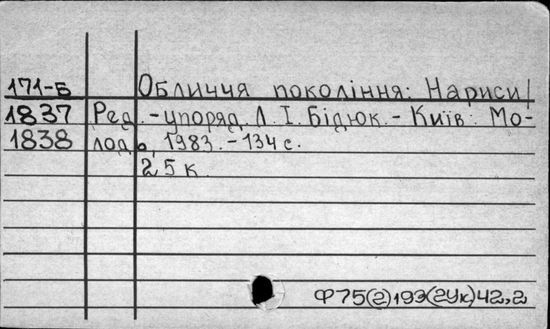 171-Б Обличчя покоління: Нариси/
1837 Ред.-упоряд. Л. І. Бідюк.- Київ: Мо-
1838 лодь, 1983.-134 с.
25 к.
Ф75(2)193(2Ук)42,2